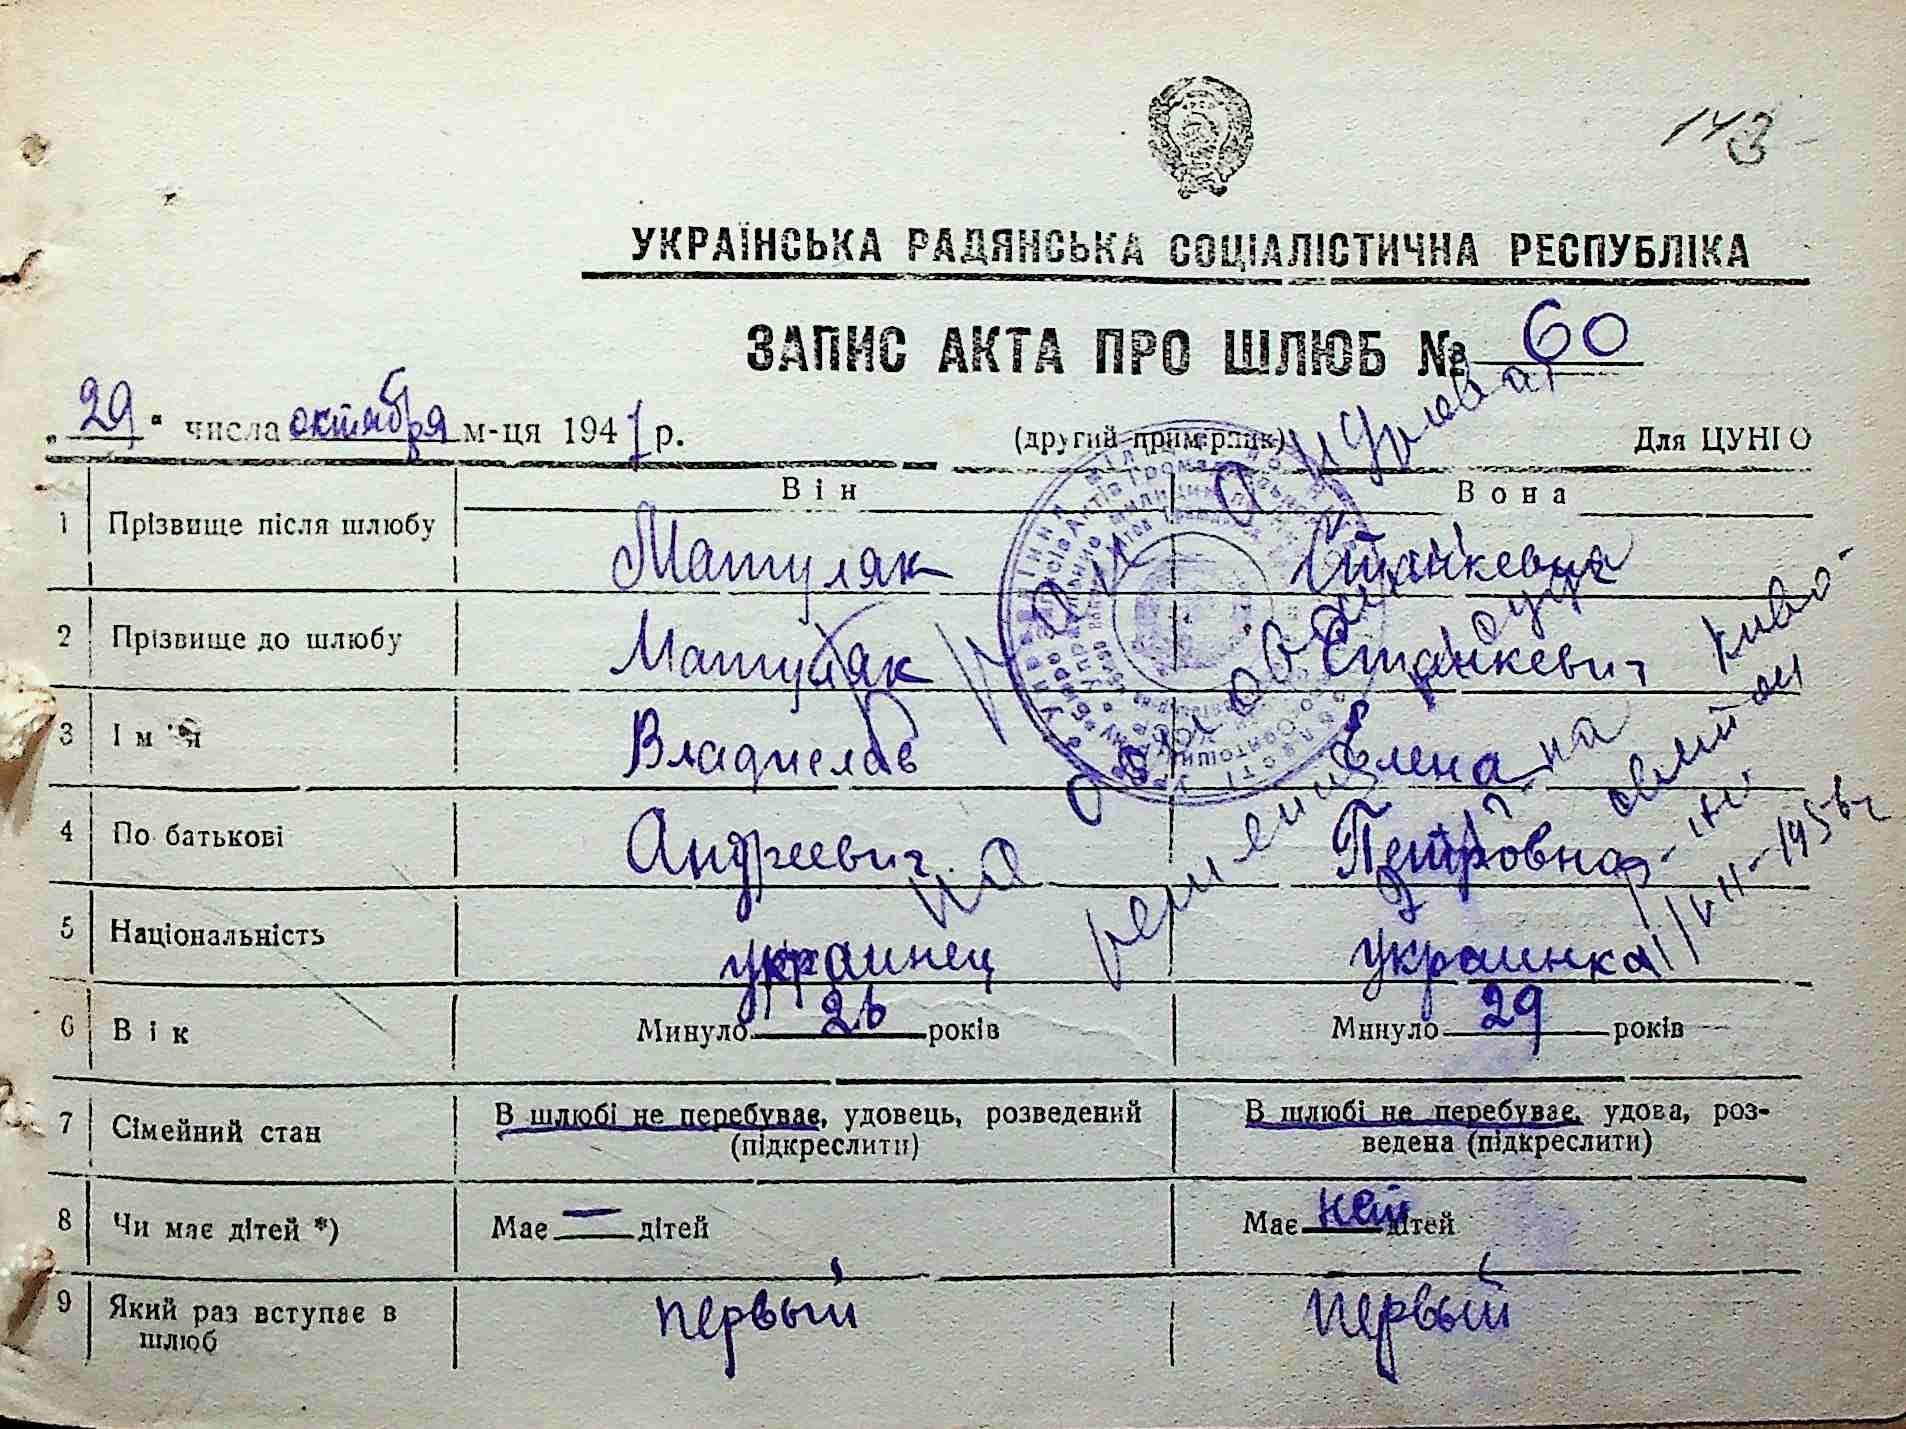 143
УКРАЇНСЬКА РАДЯНСЬКА СОЦІАЛІСТИЧНА РЕСПУБЛІКА
ЗАПИС АКТА ПРО ШЛЮБ № 60
„29“ числа октября м-ця 1947 р. (другий примірник) Для ЦУНГО
Він Вона
1 Прізвище після шлюбу Матуляк Станкевич
2 Прізвище до шлюбу Матуляк Станкевич
3 Ім'я Владислав Елена
4 По батькові Андреевич Петровна
5 Національність украинец украинка
6 Вік Минуло 26 років Минуло 29 років
7 Сімейний стан В шлюбі не перебуває, удовець, розведений В шлюбі не перебуває, удова, роз-
(підкреслити) ведена (підкреслити)
8 Чи має дітей *) Має — дітей Має нет дітей
9 Який раз вступає в первый первый
шлюб
Брак анулирован
на основании
решения
11/VII-1956г